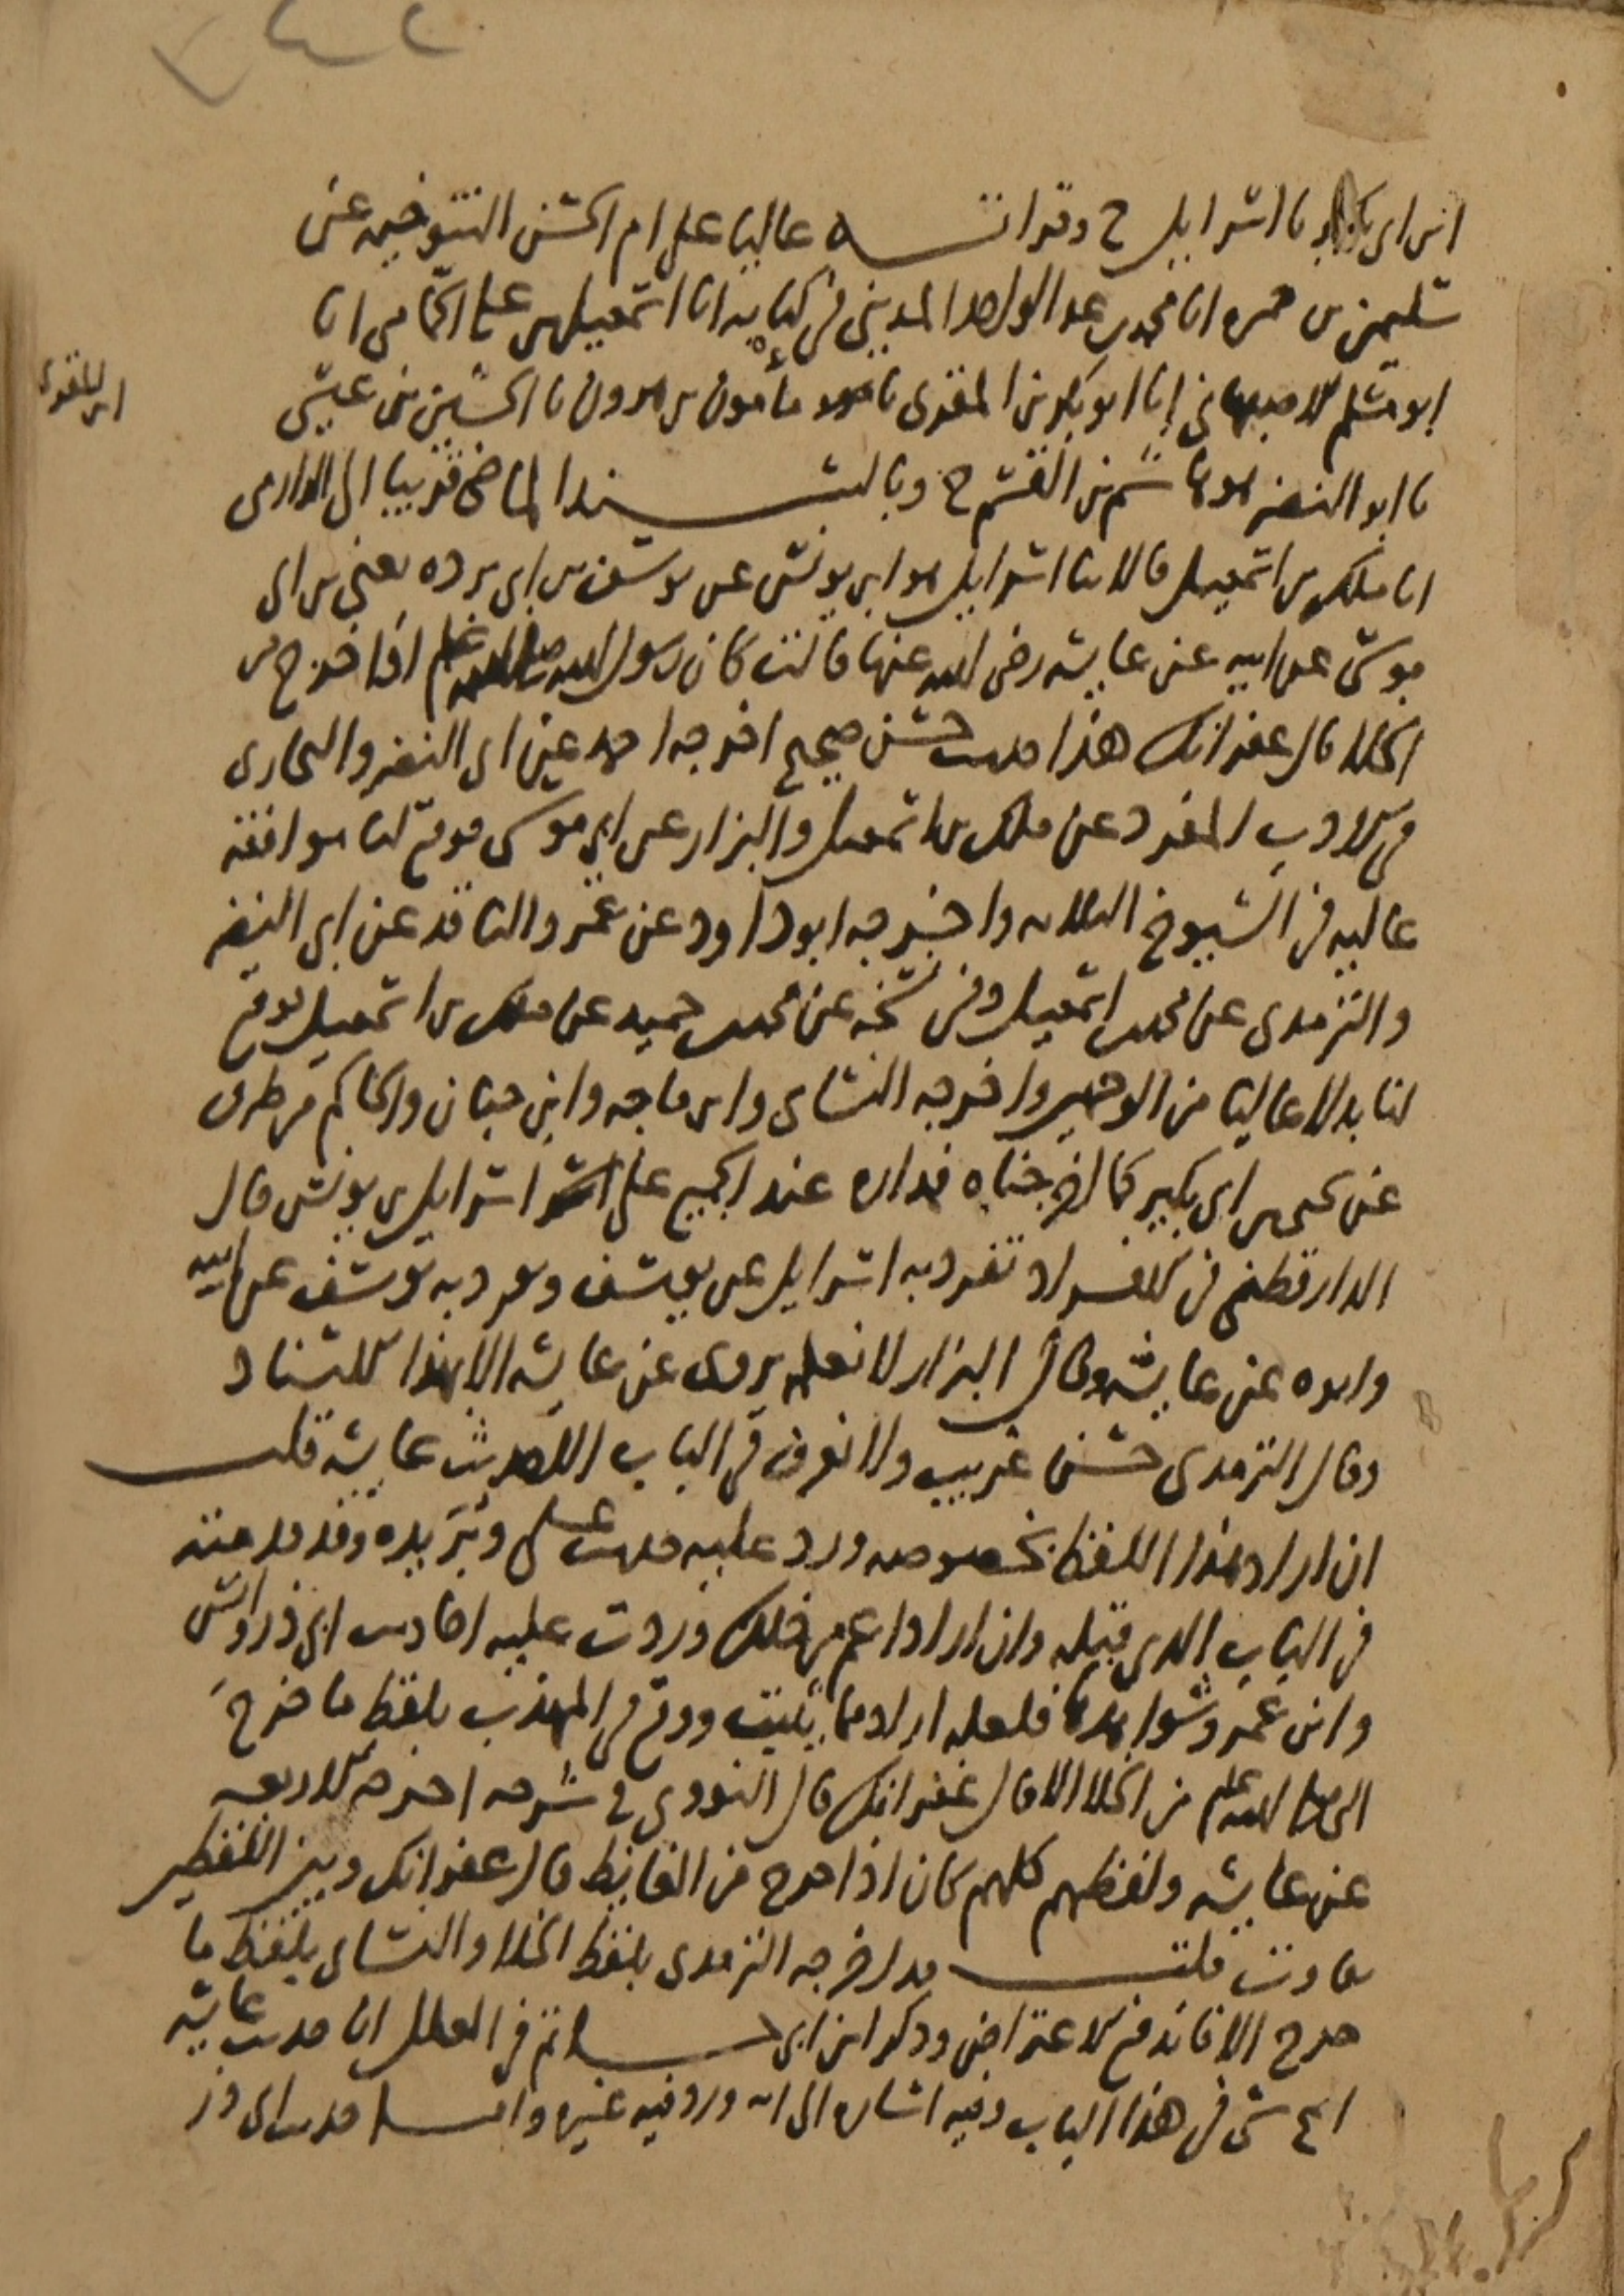 ابن ابي بكير نا اسرايل ح وقراته عاليا على ام الحسن التنوخيه عن
سليمن بن حمزه انا محمد بن عبد الواحد المديني في كتابه انا اسمعيل بن علي الحمامي انا
ابو مسلم الاصبهاني انا ابو بكر بن المقرى نا مامون بن هرون نا الحسين بن عيسى
ابن المقرى
نا ابو النضر هو هاشم بن القسم ح وبالسند الماضي قريبا الى الدارمي
انا ملك بن اسمعيل قالا نا اسرايل هو ابن يونس عن يوسف بن ابي برده يعني بن ابي
موسى عن ابيه عن عايشه رضي الله عنها قالت كان رسول الله صلى الله عليه وسلم اذا خرج من
الخلا قال غفرانك هذا حديث حسن صحيح اخرجه احمد عن ابي النضر والبخاري
في الادب المفرد عن ملك بن اسمعيل والبزار عن ابي موسى فوقع لنا موافقه
عاليه في الشيوخ الثلاثه واخرجه ابو داود عن عمرو الناقد عن ابي النضر
والترمدي عن محمد بن اسمعيل وفي نسخه عن محمد بن حميد عن ملك بن اسمعيل فوقع
لنا بدلا عاليا من الوجهين واخرجه النساي وابن ماجه وابن حبان والحاكم من طرق
عن يحيى بن ابي بكير كما اخرجناه فداره عند الجميع على اسرايل بن يونس قال
الدارقطني في الافراد تفرد به اسرايل عن يوسف وتفرد به يوسف عن ابيه
وابوه عن عايشه وقال البزار لا نعلمه يروى عن عايشه الا بهذا الاسناد
وقال الترمدي حسن غريب ولا نعرف في الباب الا حديث عايشه قلت
ان اراد هذا اللفظ بخصوصه ورد عليه حديث علي وبريده وقد قدمته
في الباب الذي قبله وان اراد اعم من ذلك وردت عليه احاديث ابي ذر وانس
وابن عمر وشواهدها فلعله اراد مما يثبت ووقع في المهذب بلفظ ما خرج
النبي صلى الله عليه وسلم من الخلا الا قال غفرانك قال النووي في شرحه اخرجه الاربعه
عن عايشه ولفظهم كلهم كان اذا خرج من الغايط قال غفرانك وبين اللفظين
تفاوت قلت قد اخرجه الترمدي بلفظ الخلا والنساي بلفظ ما
خرج الا فاندفع الاعتراض وذكر ابن ابي حاتم في العلل ان حديث عايشه
اصح شي في هذا الباب وفيه اشاره الى انه ورد فيه غيره واما حديث ابي ذر